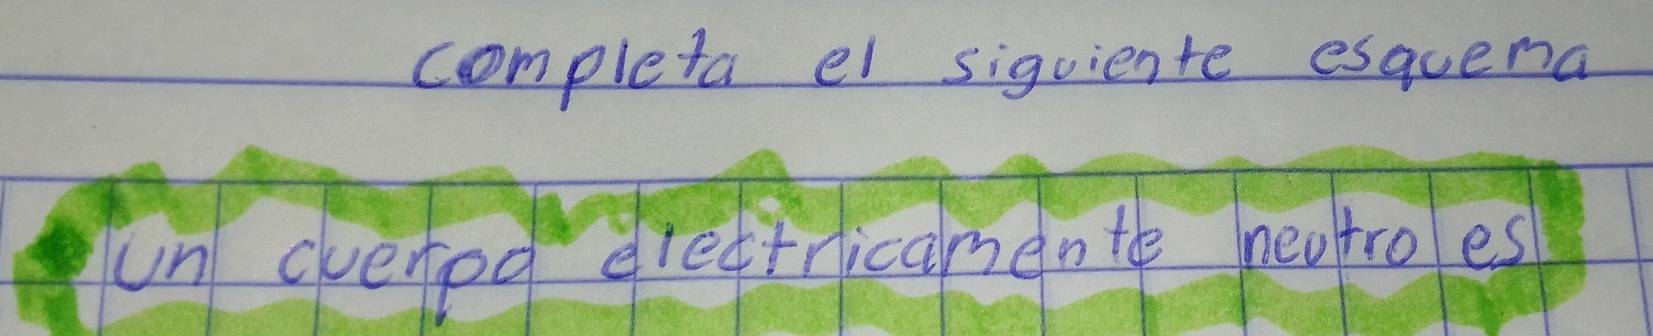 completa el siguiente esquema
un cuerpo electricamente neutro es